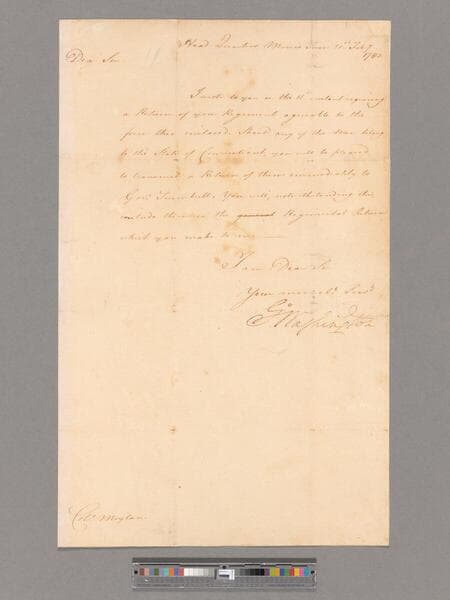 Head Quarters Morris Town 21st Feby
1780
Dear Sir.
I wrote to you on the 11th instant requiring
a Return of your Regiment agreeable to the
form then inclosed. Should any of the Men belong
to the State of Connecticut, you will be pleased
to transmit a Return of them immediately to
Govr Trumbull. You will, notwithstanding this
include them in the general Regimental Return
which you make to me.
I am Dear Sir
Your most obt Servt
Go: Washington
Colo. Moylan.